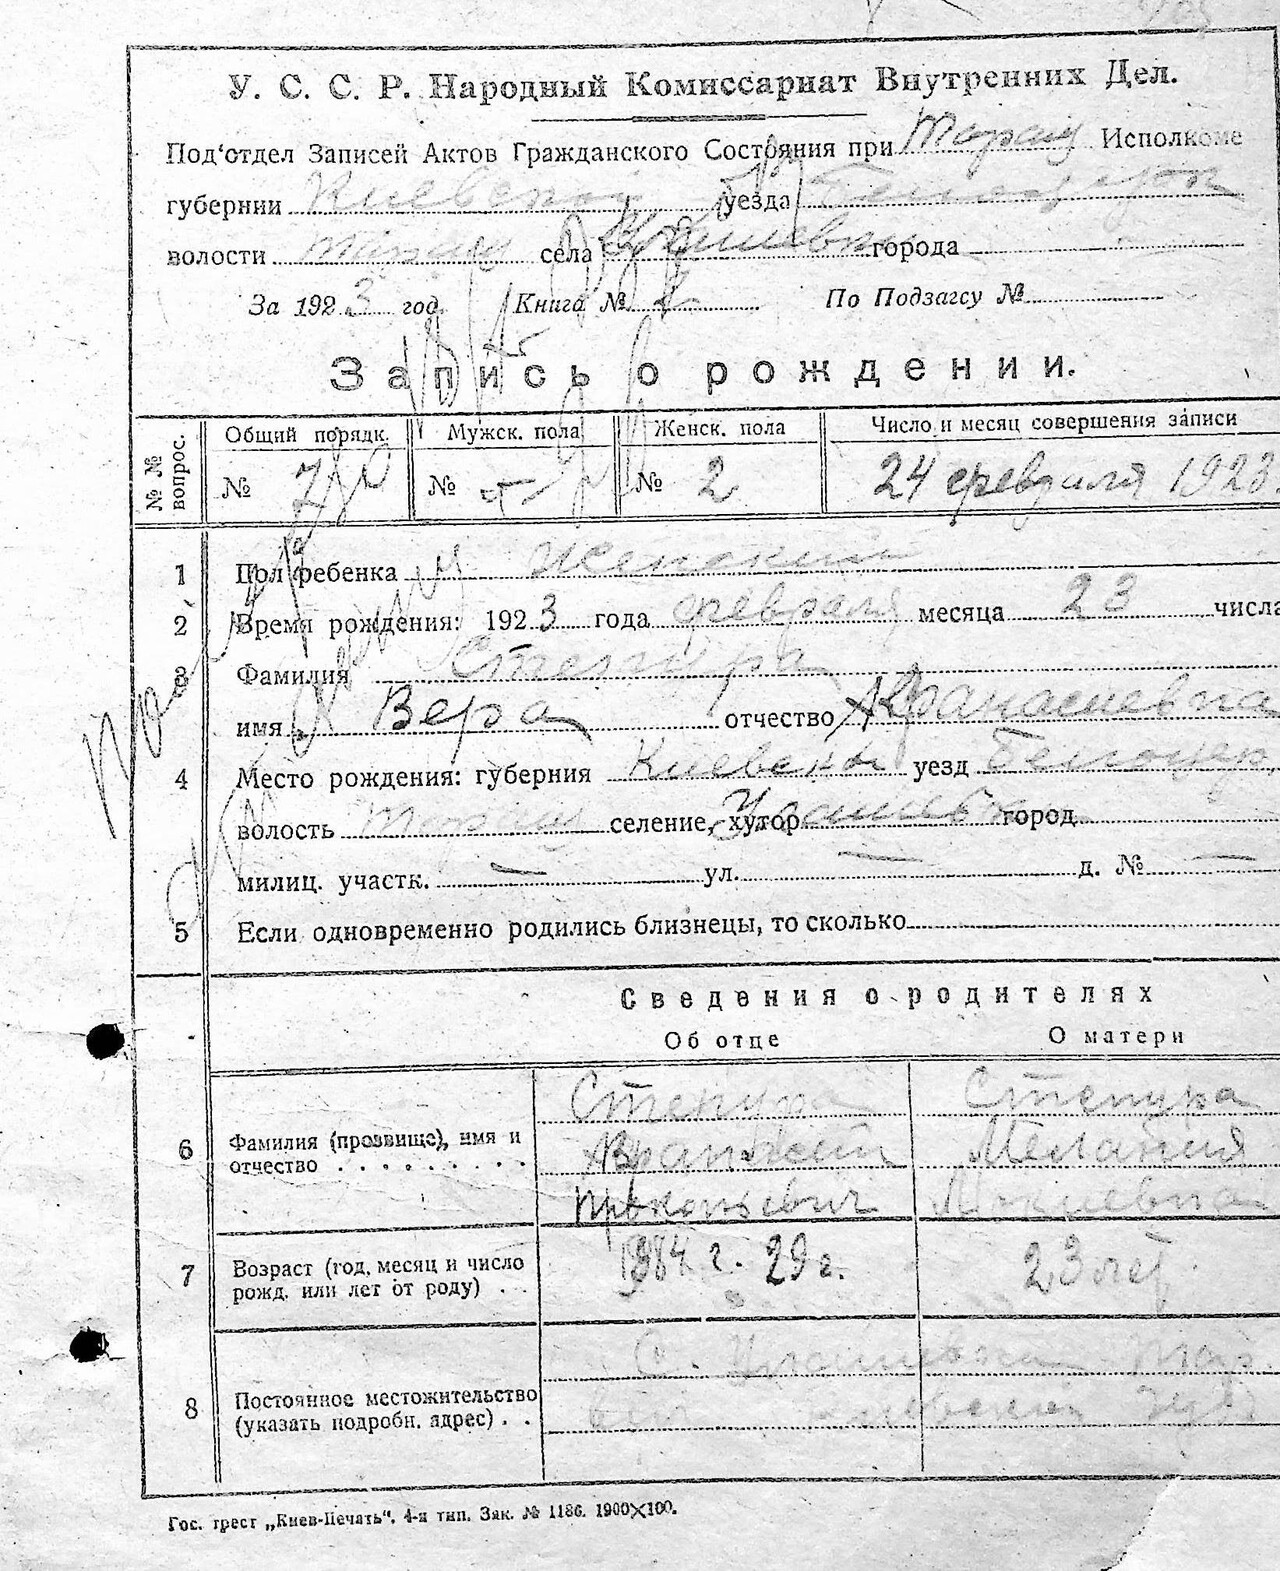 У. С. С. Р. Народный Комиссариат Внутренних Дел.
Под'отдел Записей Актов Гражданского Состояния при Таращ Исполкоме
губернии Киевской уезда Белоцерк
волости Таращ села города
За 1923 год. Книга № По Подзагсу №
Запись о рождении.
№ № вопрос. Общий порядк. Мужск. пола Женск. пола Число и месяц совершения записи
№ № № 2 24 февраля 1923.
1 Пол ребенка Женский
2 Время рождения: 1923 года февраля месяца 23 числа
3 Фамилия Степура
имя Вера отчество Афанасиевна
4 Место рождения: губерния Киевской уезд Белоцер.
волость Таращ селение, хутор город
милиц. участк. — ул. — д. № —
5 Если одновременно родились близнецы, то сколько
Сведения о родителях
Об отце О матери
Степура Степура
6 Фамилия (прозвище), имя и Афанасий Мелания
отчество Прокопьевич
7 Возраст (год, месяц и число 29 г. 23 лет
рожд. или лет от роду)
С.
8 Постоянное местожительство
(указать подробн. адрес)
Гос. трест „Киев-Печать“. 4-я тип. Зак. № 1186. 1900×100.